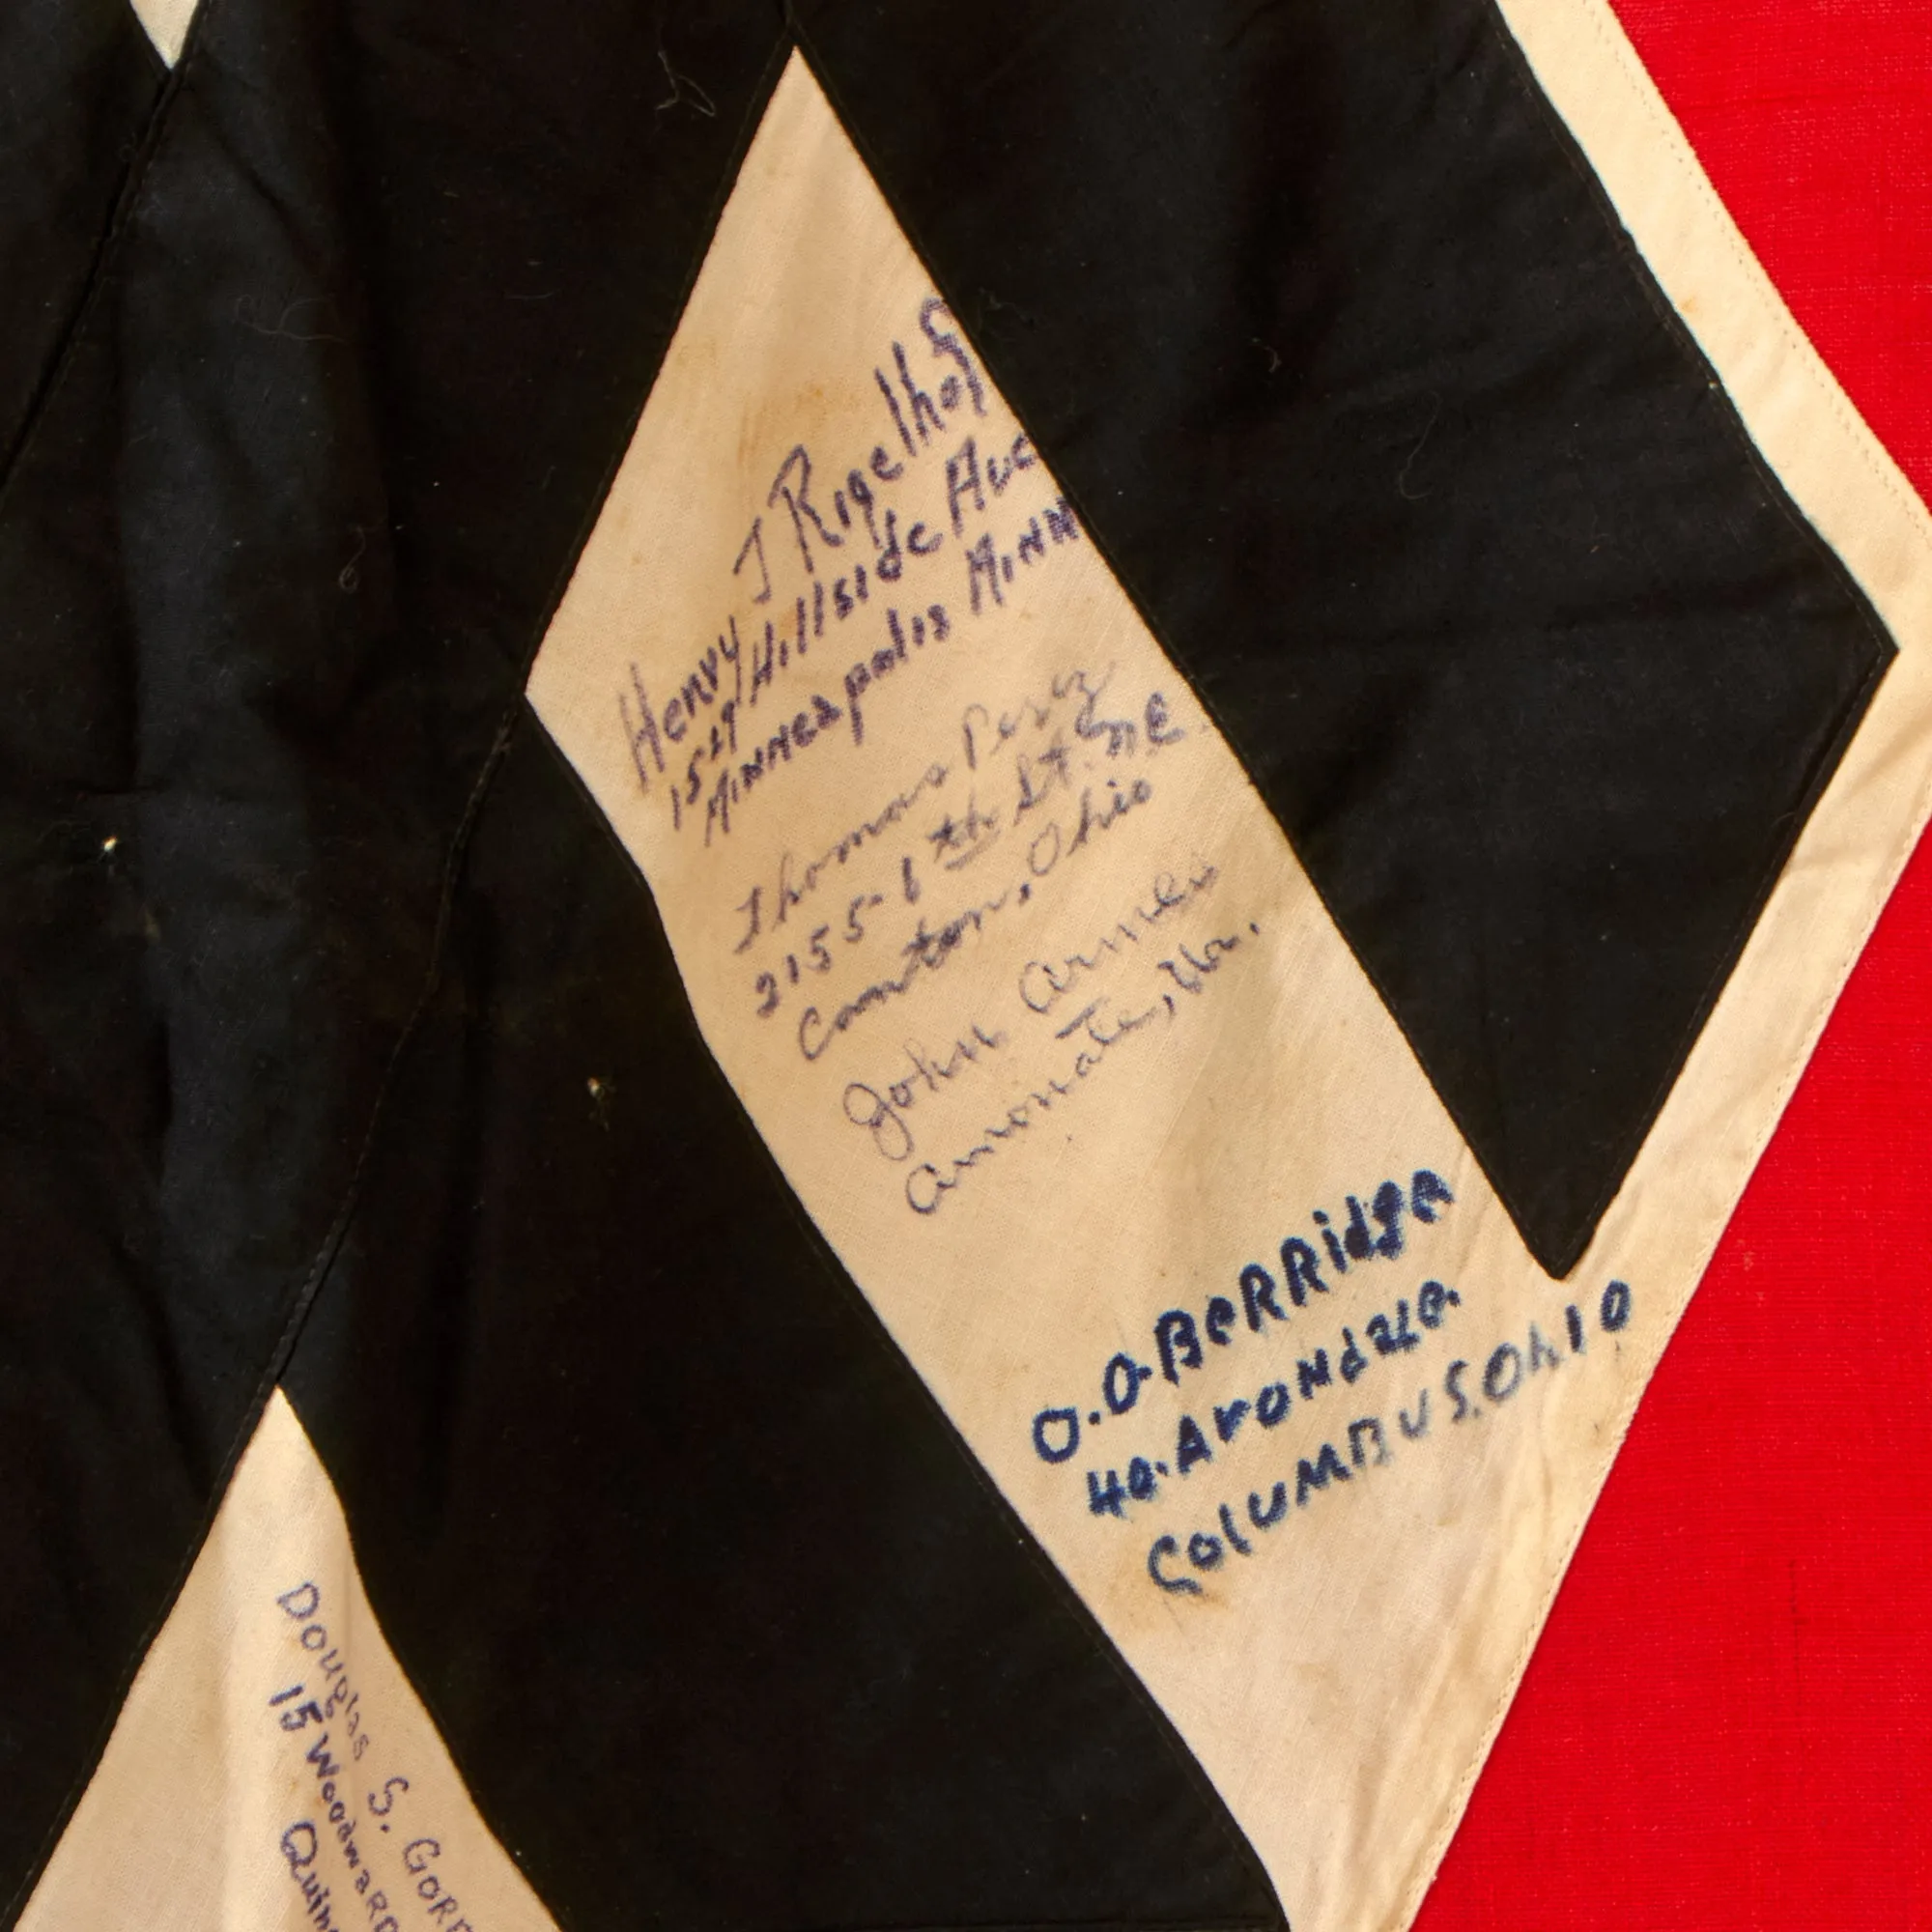 Henry J Rigelhof
1529 Hillside Ave
Minneapolis Minn
Thomas Perez
2155-6th St. NE
Canton, Ohio
John Armes
Amonate, Va.
O.O. BeRRidge
40. Avondale.
COlUMBUS. OhIO
Douglas S. GORD
15 WoodwaRD
Quin